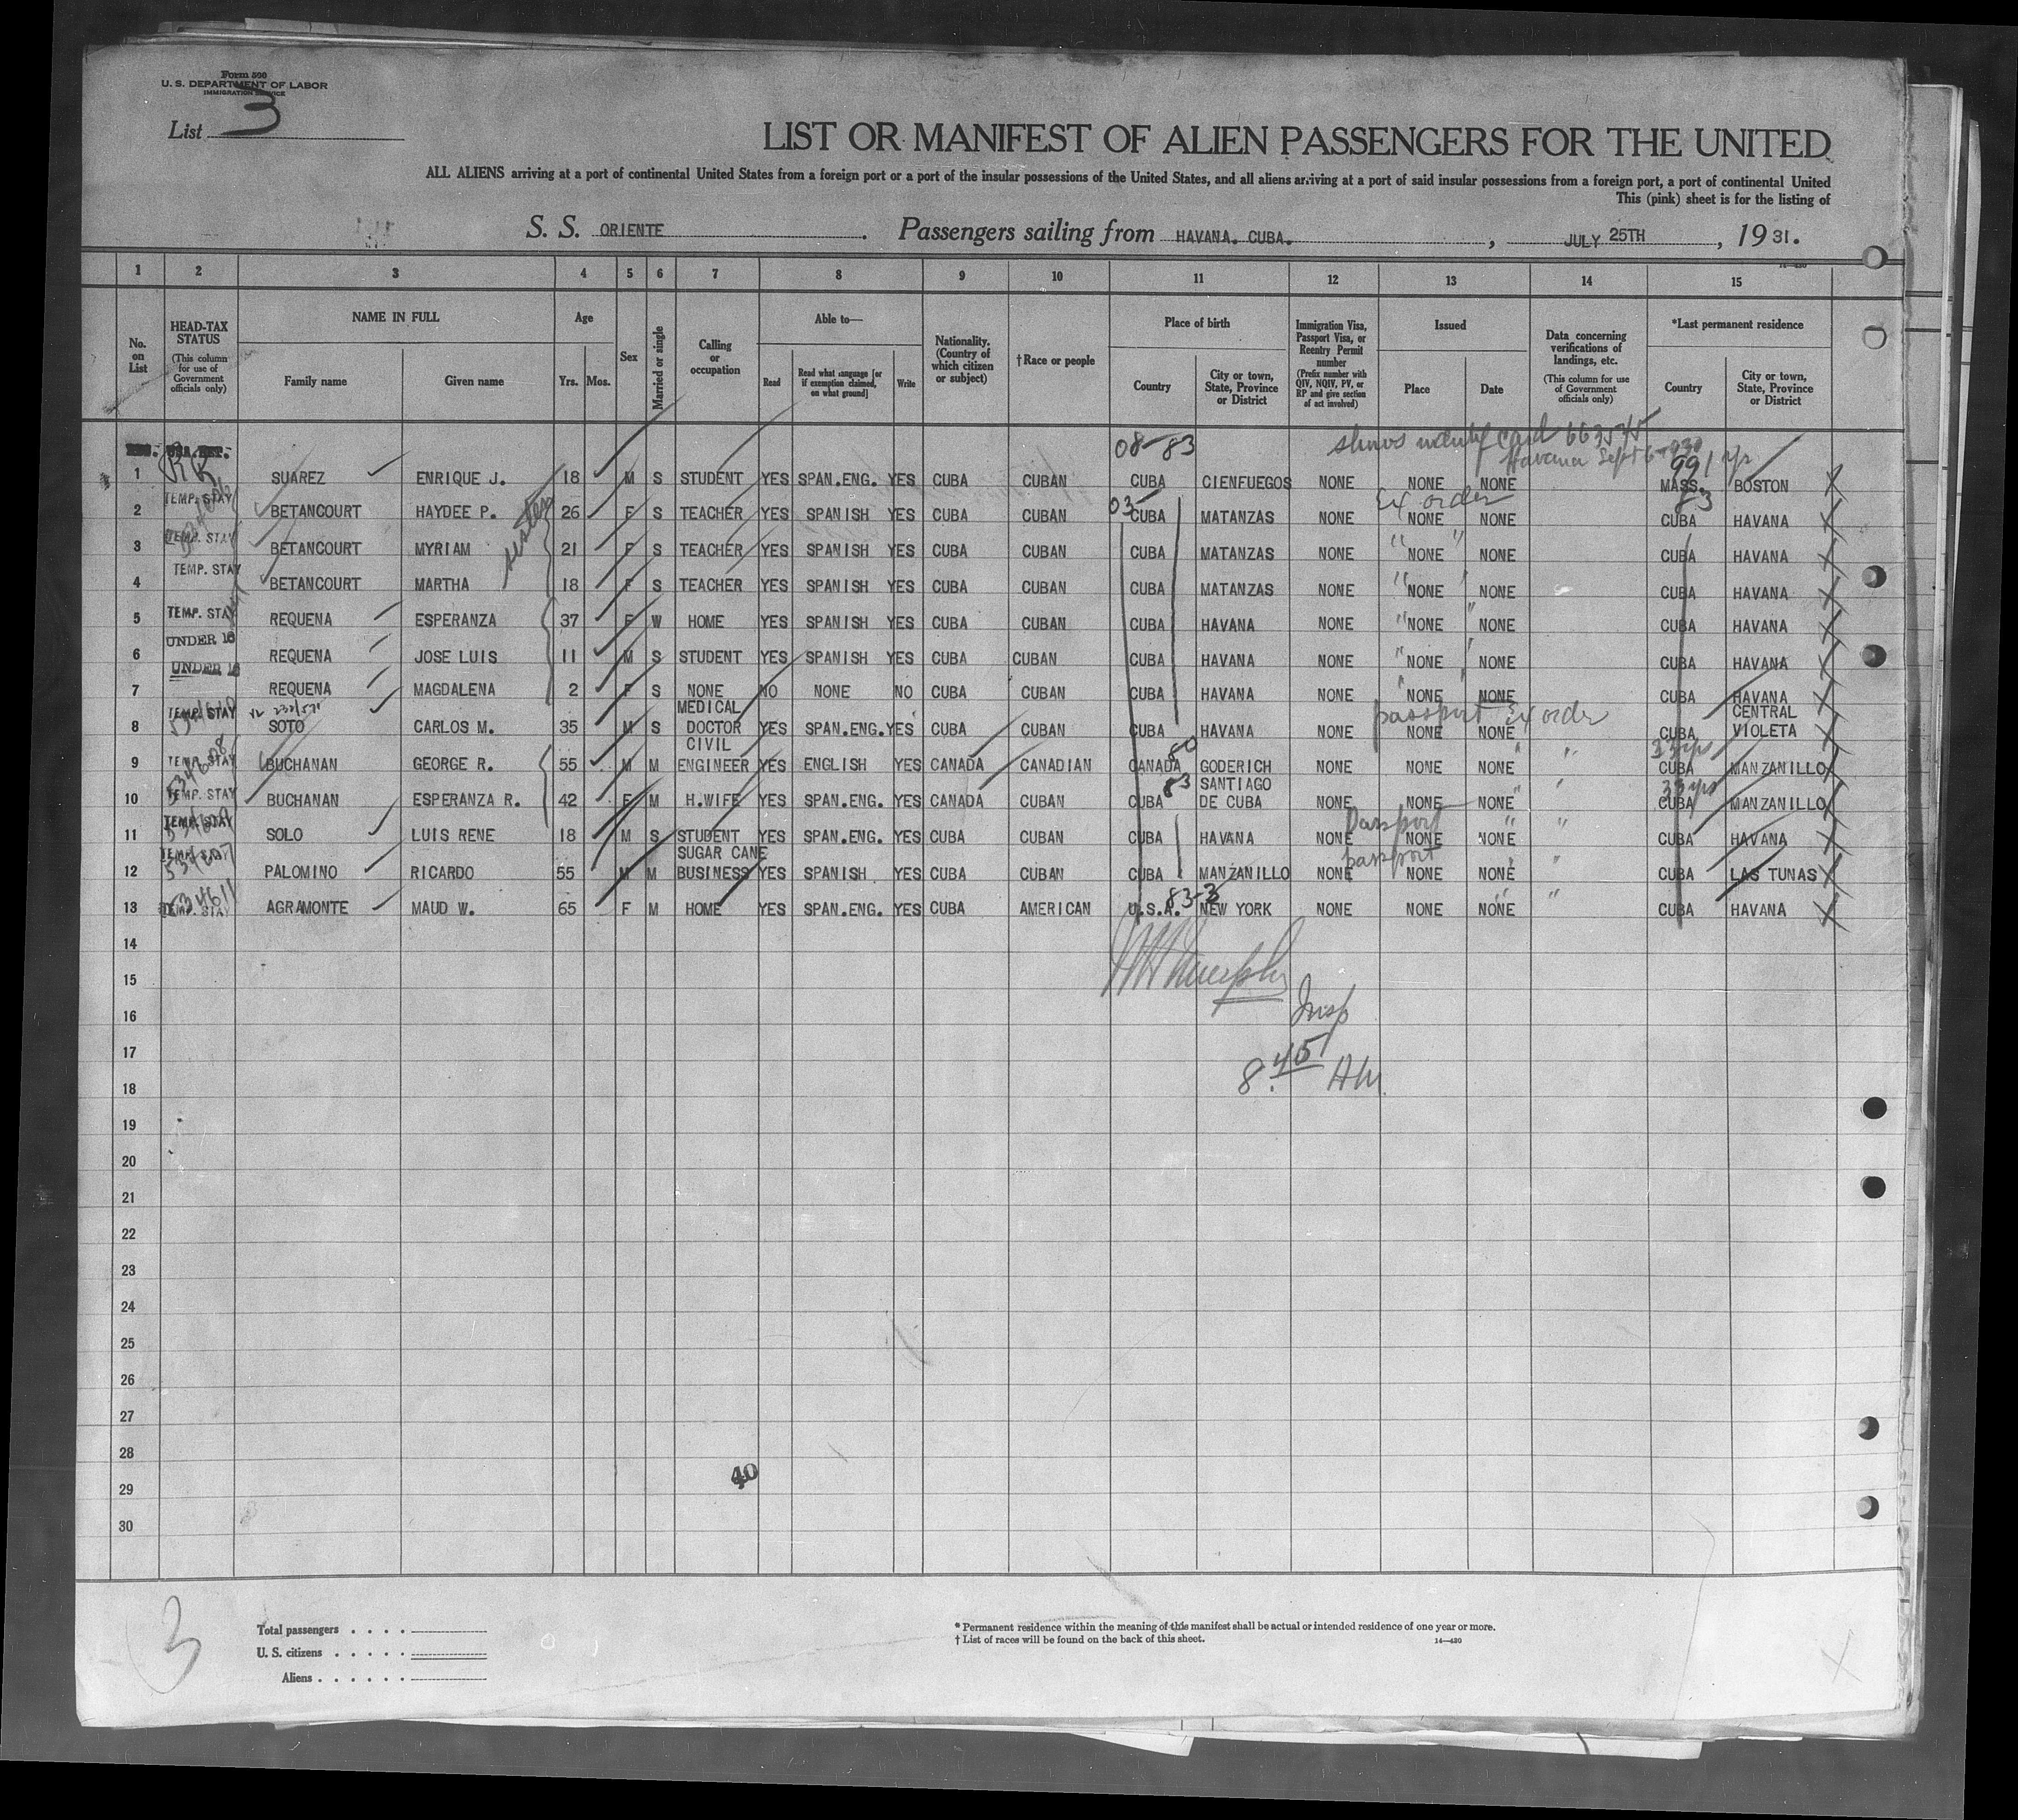 Form 500
U. S. DEPARTMENT OF LABOR
IMMIGRATION SERVICE
List 3
LIST OR MANIFEST OF ALIEN PASSENGERS FOR THE UNITED
ALL ALIENS arriving at a port of continental United States from a foreign port or a port of the insular possessions of the United States, and all aliens arriving at a port of said insular possessions from a foreign port, a port of continental United
This (pink) sheet is for the listing of
S. S. ORIENTE. Passengers sailing from HAVANA. CUBA., JULY 25TH, 1931.
1 2 3 4 5 6 7 8 9 10 11 12 13 14 15
No. on List
HEAD-TAX STATUS (This column for use of Government officials only)
NAME IN FULL
Family name Given name
Age
Yrs. Mos.
Sex
Married or single
Calling or occupation
Able to—
Read Read what language [or if exemption claimed, on what ground] Write
Nationality. (Country of which citizen or subject)
†Race or people
Place of birth
Country City or town, State, Province or District
Immigration Visa, Passport Visa, or Reentry Permit number (Prefix number with QIV, NQIV, PV, or RP and give section of act involved)
Issued
Place Date
Data concerning verifications of landings, etc. (This column for use of Government officials only)
*Last permanent residence
Country City or town, State, Province or District
08-83 shows identif card 663545
Havana Sept 6-930
991 yr
1 SUAREZ ENRIQUE J. 18 M S STUDENT YES SPAN.ENG. YES CUBA CUBAN CUBA CIENFUEGOS NONE NONE NONE MASS. BOSTON
TEMP. STAY 03 Ex order 83
2 BETANCOURT HAYDEE P. 26 F S TEACHER YES SPANISH YES CUBA CUBAN CUBA MATANZAS NONE NONE NONE CUBA HAVANA
TEMP. STAY sisters " "
3 BETANCOURT MYRIAM 21 F S TEACHER YES SPANISH YES CUBA CUBAN CUBA MATANZAS NONE NONE NONE CUBA HAVANA
TEMP. STAY " "
4 BETANCOURT MARTHA 18 F S TEACHER YES SPANISH YES CUBA CUBAN CUBA MATANZAS NONE NONE NONE CUBA HAVANA
TEMP. STAY " "
5 REQUENA ESPERANZA 37 F W HOME YES SPANISH YES CUBA CUBAN CUBA HAVANA NONE NONE NONE CUBA HAVANA
UNDER 16 " "
6 REQUENA JOSE LUIS 11 M S STUDENT YES SPANISH YES CUBA CUBAN CUBA HAVANA NONE NONE NONE CUBA HAVANA
UNDER 16 " "
7 REQUENA MAGDALENA 2 F S NONE NO NONE NO CUBA CUBAN CUBA HAVANA NONE NONE NONE CUBA HAVANA
TEMP. STAY passport Ex order
8 SOTO CARLOS M. 35 M S MEDICAL DOCTOR YES SPAN.ENG. YES CUBA CUBAN CUBA HAVANA NONE NONE NONE CUBA CENTRAL VIOLETA
TEMP. STAY 80 " " 33 yrs
9 BUCHANAN GEORGE R. 55 M M CIVIL ENGINEER YES ENGLISH YES CANADA CANADIAN CANADA GODERICH NONE NONE NONE CUBA MANZANILLO
TEMP. STAY 83 " " 33 yrs
10 BUCHANAN ESPERANZA R. 42 F M H.WIFE YES SPAN.ENG. YES CANADA CUBAN CUBA SANTIAGO DE CUBA NONE NONE NONE CUBA MANZANILLO
TEMP. STAY passport " "
11 SOLO LUIS RENE 18 M S STUDENT YES SPAN.ENG. YES CUBA CUBAN CUBA HAVANA NONE NONE NONE CUBA HAVANA
TEMP. STAY passport " "
12 PALOMINO RICARDO 55 M M SUGAR CANE BUSINESS YES SPANISH YES CUBA CUBAN CUBA MANZANILLO NONE NONE NONE CUBA LAS TUNAS
534611 TEMP. STAY 83-3 " "
13 AGRAMONTE MAUD W. 65 F M HOME YES SPAN.ENG. YES CUBA AMERICAN U.S.A. NEW YORK NONE NONE NONE CUBA HAVANA
14
15 Murphy
16 Insp
17
18 8.45 AM
19
20
21
22
23
24
25
26
27
28
40
29
30
3
Total passengers
U. S. citizens
Aliens
* Permanent residence within the meaning of this manifest shall be actual or intended residence of one year or more.
† List of races will be found on the back of this sheet.
14—430